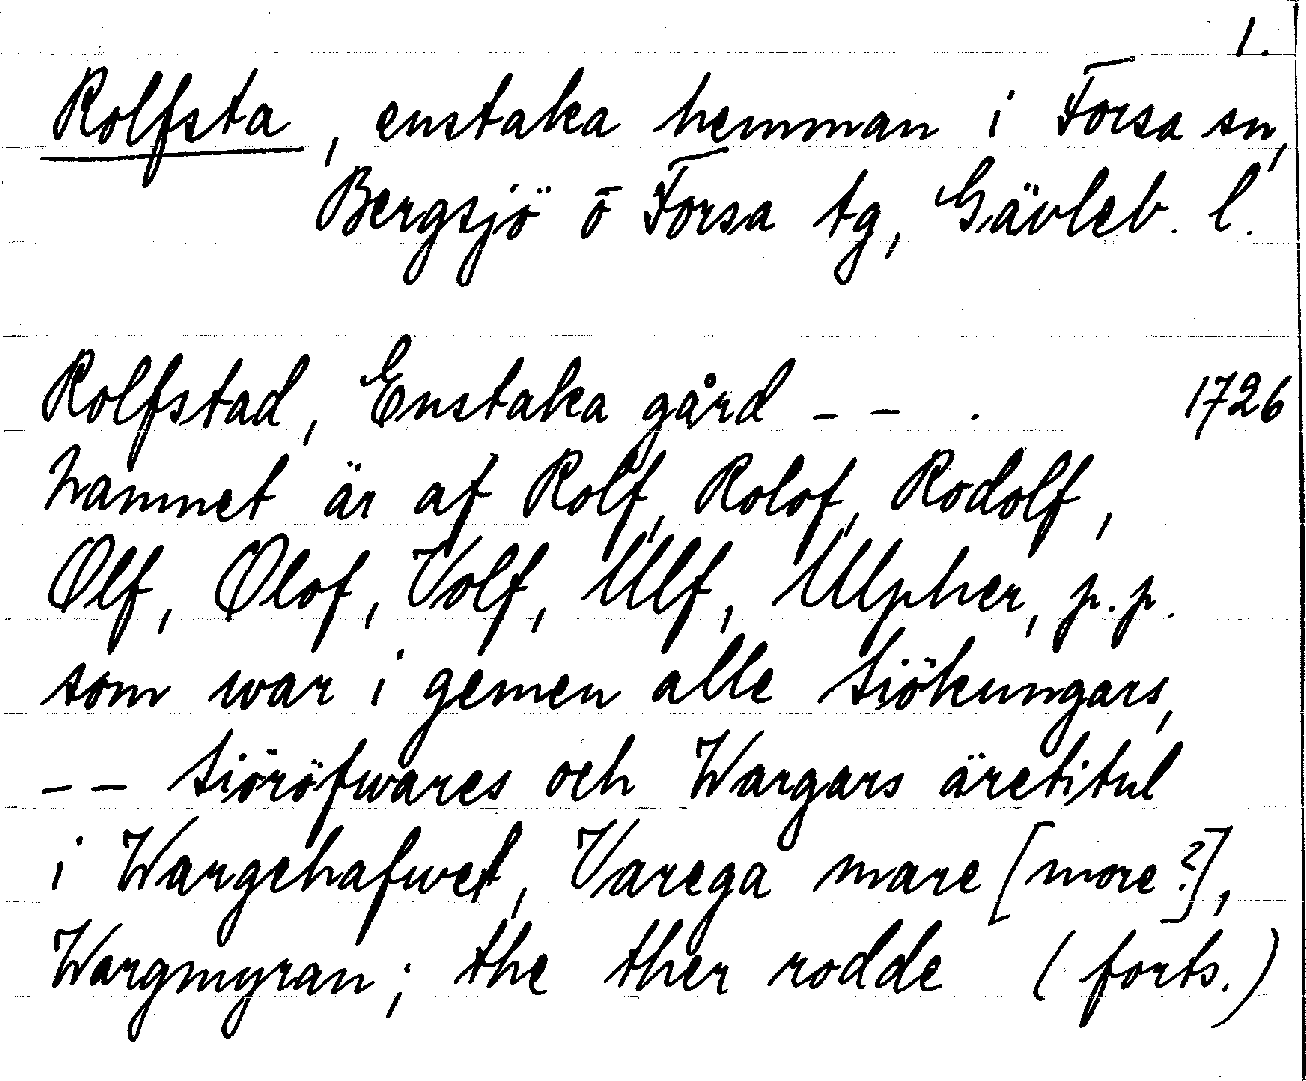 1.
Rolfsta, enstaka hemman i Forsa sn,
Bergsjö o Forsa tg, Gävleb. l.
Rolfstad, Enstaka gård – – . 1726
hamnet är af Rolf, Rolof, Rodolf,
Olf, Olof, Volf, Ulf, Ulpher, p.p.
som war i gemen alle Siökungars,
– – Siöröfwares och Wargars äretitul
i Wargehafwet, Varega mare [more?],
Wargmyran; the ther rodde (forts.)